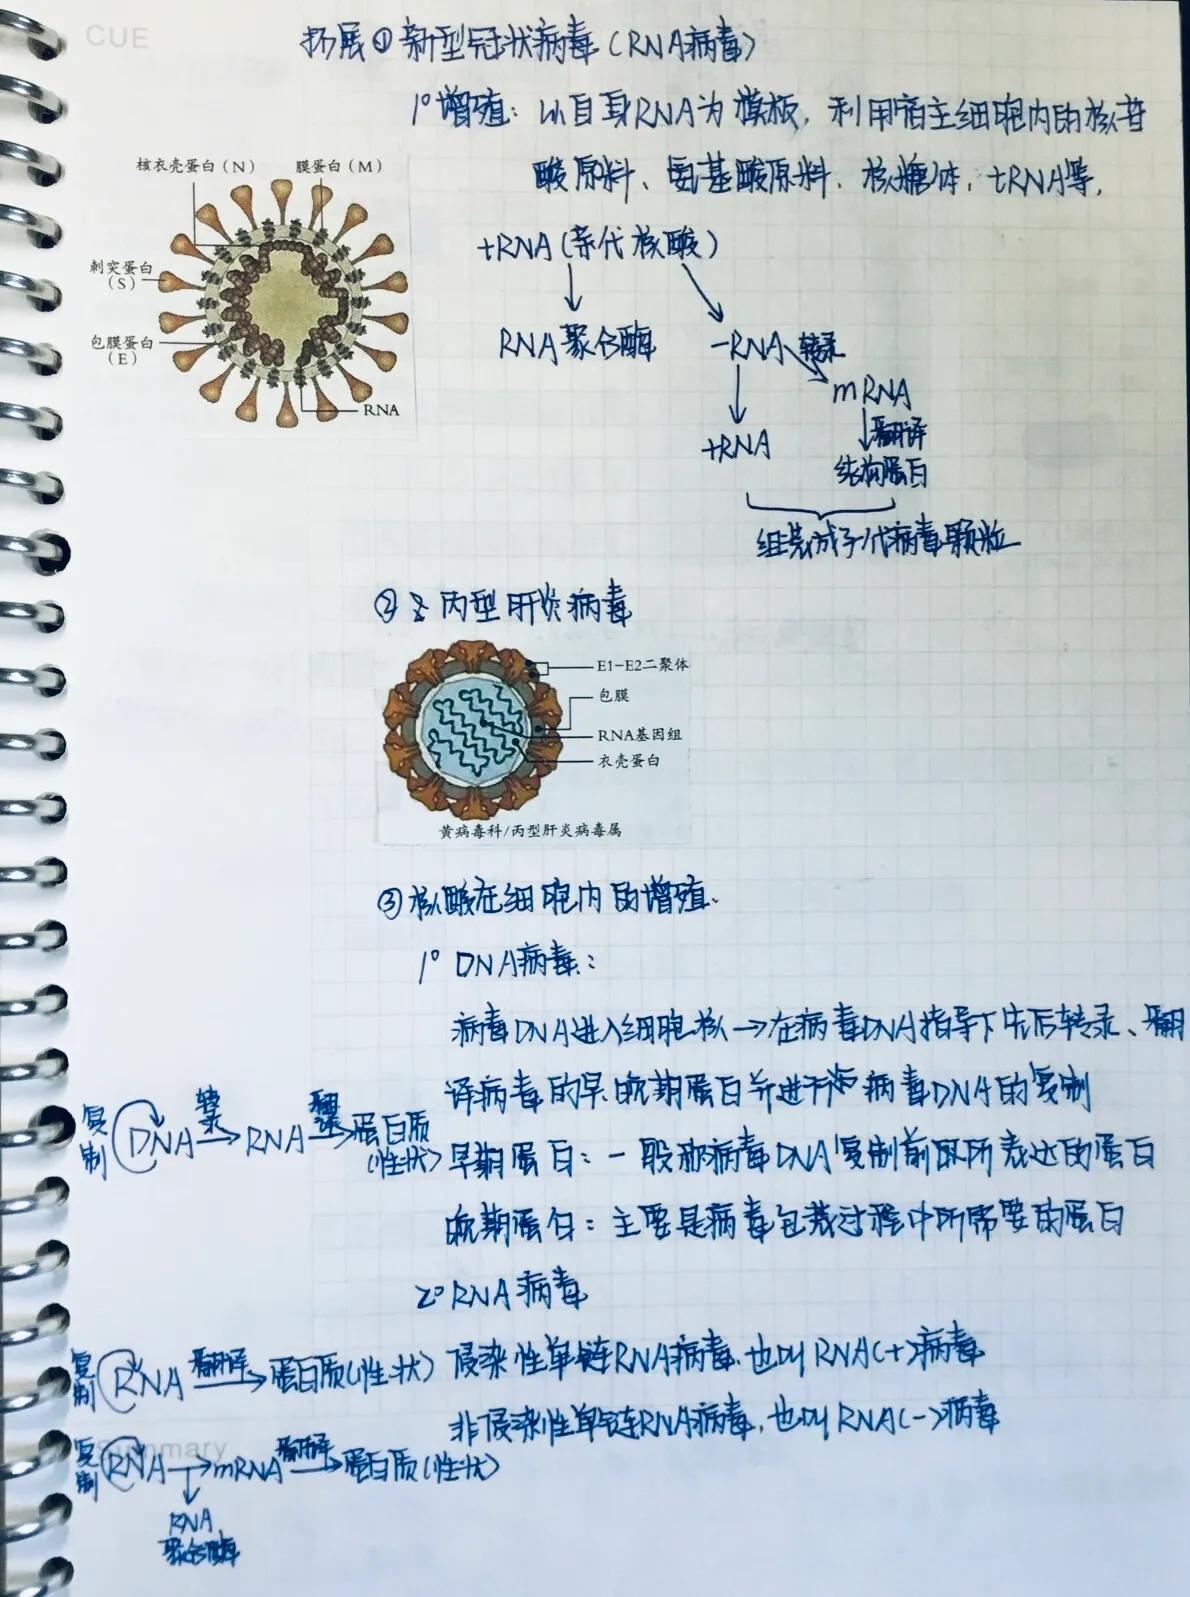 CUE
拓展① 新型冠状病毒（RNA病毒）
1°增殖：以自身RNA为模板，利用宿主细胞内的核苷
酸原料、氨基酸原料、核糖体，tRNA等，
核衣壳蛋白（N）
膜蛋白（M）
刺突蛋白
（S）
包膜蛋白
（E）
RNA
+RNA（亲代核酸）
RNA聚合酶
-RNA 转录
mRNA
+RNA
翻译
结构蛋白
组装成子代病毒颗粒
② 丙型肝炎病毒
E1-E2二聚体
包膜
RNA基因组
衣壳蛋白
黄病毒科/丙型肝炎病毒属
③ 核酸在细胞内的增殖.
1° DNA病毒：
病毒DNA进入细胞核→在病毒DNA指导下先后转录、翻
译病毒的早.晚期蛋白并进行 病毒DNA的复制
复制 DNA 转录 RNA 翻译 蛋白质
（性状）
早期蛋白：一般称病毒DNA复制前 所表达的蛋白
晚期蛋白：主要是病毒包装过程中所需要的蛋白
2° RNA病毒
复制 RNA 翻译 蛋白质（性状）
侵染性单链RNA病毒，也叫RNA（+）病毒
非侵染性单链RNA病毒，也叫RNA（-）病毒
Summary
复制 RNA → mRNA 翻译 蛋白质（性状）
RNA
聚合酶